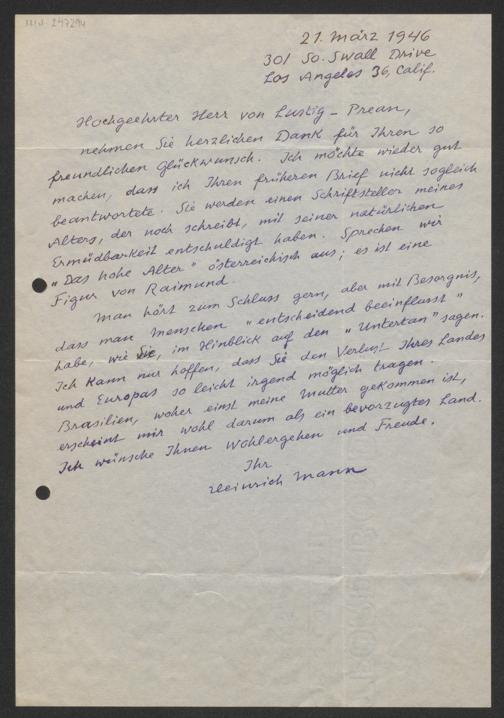 21. März 1946
301 So. Swall Drive
Los Angeles 36, Calif.
Hochgeehrter Herr von Lustig-Prean,
nehmen Sie herzlichen Dank für Ihren so
freundlichen Glückwunsch. Ich möchte wieder gut
machen, dass ich Ihren früheren Brief nicht sogleich
beantwortete. Sie werden einen Schriftsteller meines
Alters, der noch schreibt, mit seiner natürlichen
Ermüdbarkeit entschuldigt haben. Sprechen wir
"Das hohe Alter" österreichisch aus; es ist eine
Figur von Raimund.
Man hört zum Schluss gern, aber mit Besorgnis,
dass man Menschen "entscheidend beeinflusst"
habe, wie Sie, im Hinblick auf den "Untertan" sagen.
Ich kann nur hoffen, dass Sie den Verlust Ihres Landes
und Europas so leicht irgend möglich tragen.
Brasilien, woher einst meine Mutter gekommen ist,
erscheint mir wohl darum als ein bevorzugtes Land.
Ich wünsche Ihnen Wohlergehen und Freude.
Ihr
Heinrich Mann